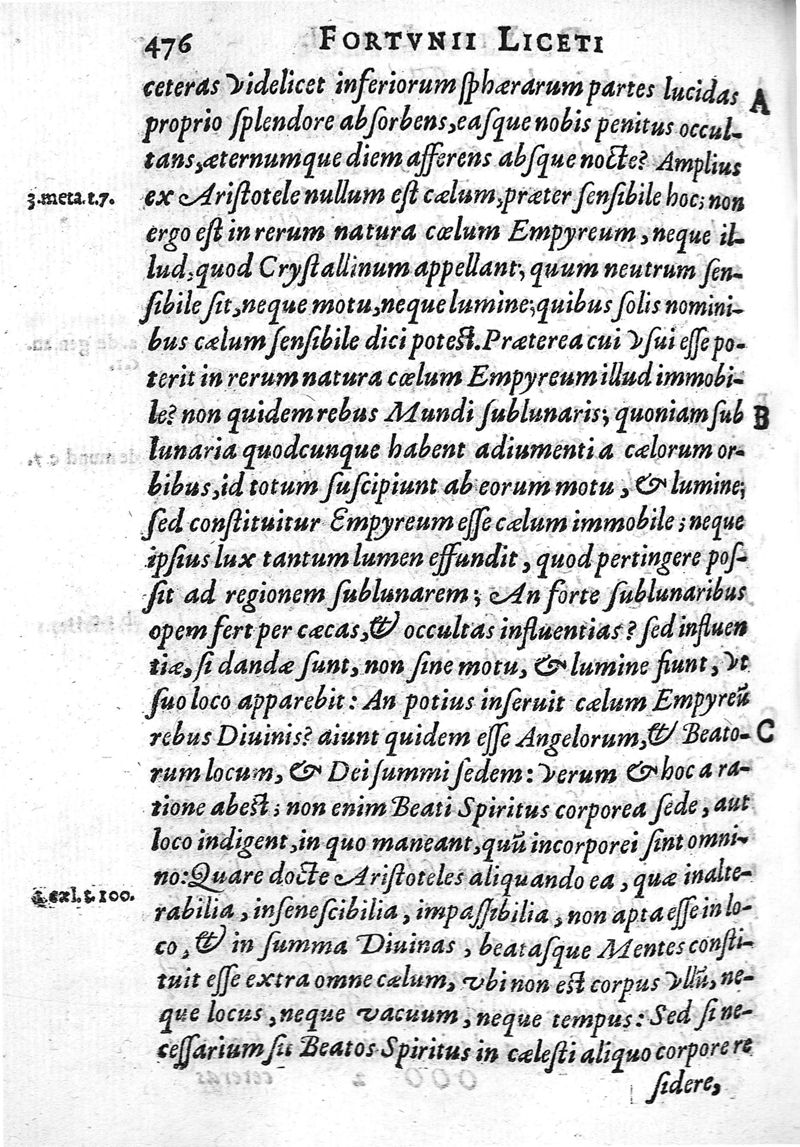 476 FORTVNII LICETI
ceteras videlicet inferiorum sphærarum partes lucidas A
proprio splendore absorbens, easque nobis penitus occul-
tans, æternumque diem afferens absque nocte? Amplius
3.meta.t.7. ex Aristotele nullum est cælum, præter sensibile hoc; non
ergo est in rerum natura cœlum Empyreum, neque il-
lud, quod Crystallinum appellant, quum neutrum sen-
sibile sit, neque motu, neque lumine; quibus solis nomini-
bus cælum sensibile dici potest. Præterea cui vsui esse po-
terit in rerum natura cœlum Empyreum illud immobi-
le? non quidem rebus Mundi sublunaris; quoniam sub B
lunaria quodcunque habent adiumenti a cælorum or-
bibus, id totum suscipiunt ab eorum motu, & lumine;
sed constituitur Empyreum esse cælum immobile; neque
ipsius lux tantum lumen effundit, quod pertingere pos-
sit ad regionem sublunarem; An forte sublunaribus
opem fert per cæcas, & occultas influentias? sed influen
tiæ, si dandæ sunt, non sine motu, & lumine fiunt, vt
suo loco apparebit: An potius inseruit cælum Empyreū
rebus Diuinis? aiunt quidem esse Angelorum, & Beato- C
rum locum, & Dei summi sedem: verum & hoc a ra-
tione abest; non enim Beati Spiritus corporea sede, aut
loco indigent, in quo maneant, quū incorporei sint omni-
no: Quare docte Aristoteles aliquando ea, quæ inalte-
cœl.t.100. rabilia, insenescibilia, impassibilia, non apta esse in lo-
co, & in summa Diuinas, beatasque Mentes consti-
tuit esse extra omne cælum, vbi non est corpus vllū, ne-
que locus, neque vacuum, neque tempus: Sed si ne-
cessarium sit Beatos Spiritus in cælesti aliquo corpore re
sidere,